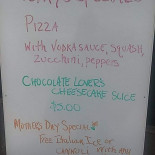 PIZZA
WITH VODKA SAUCE, SQUASH,
ZUCCHINI, PEPPERS
CHOCOLATE LOVERS
CHEESECAKE SLICE
MOTHERS DAY SPECIAL
FREE ITALIAN ICE OR
CANNOLI WITH ANY